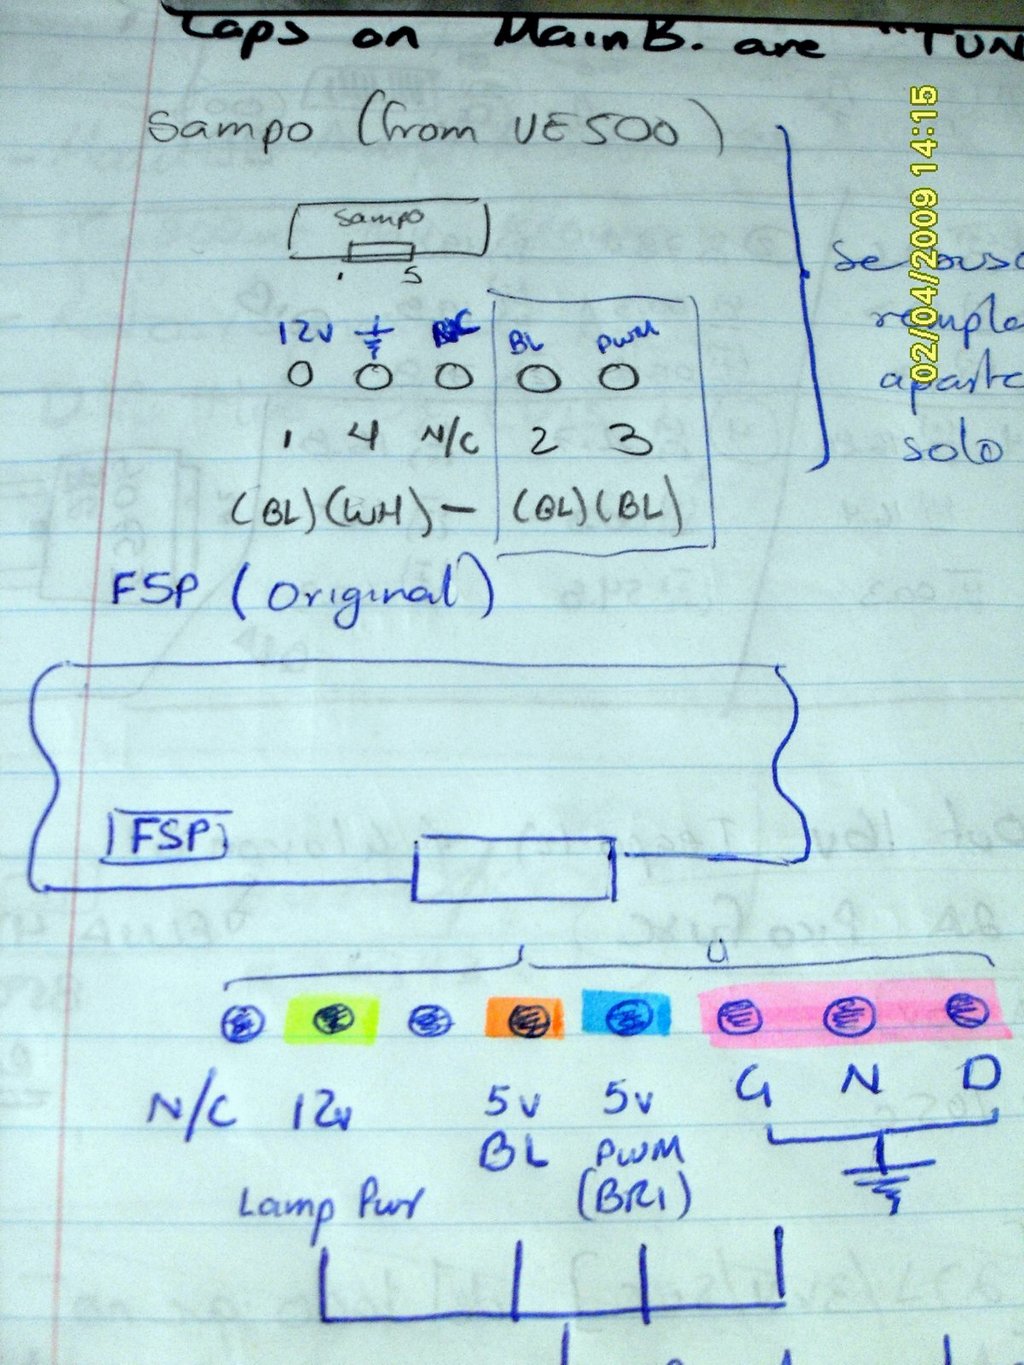 Caps on MainB. are "TUN
Sampo (from UE500)
Sampo
1 5
12v BL PWM
1 4 N/C 2 3
(BL) (WH) — (BL) (BL)
solo
FSP (Original)
FSP
N/C 12v 5v 5v G N D
BL PWM
Lamp Pwr (BRI)
02/04/2009 14:15